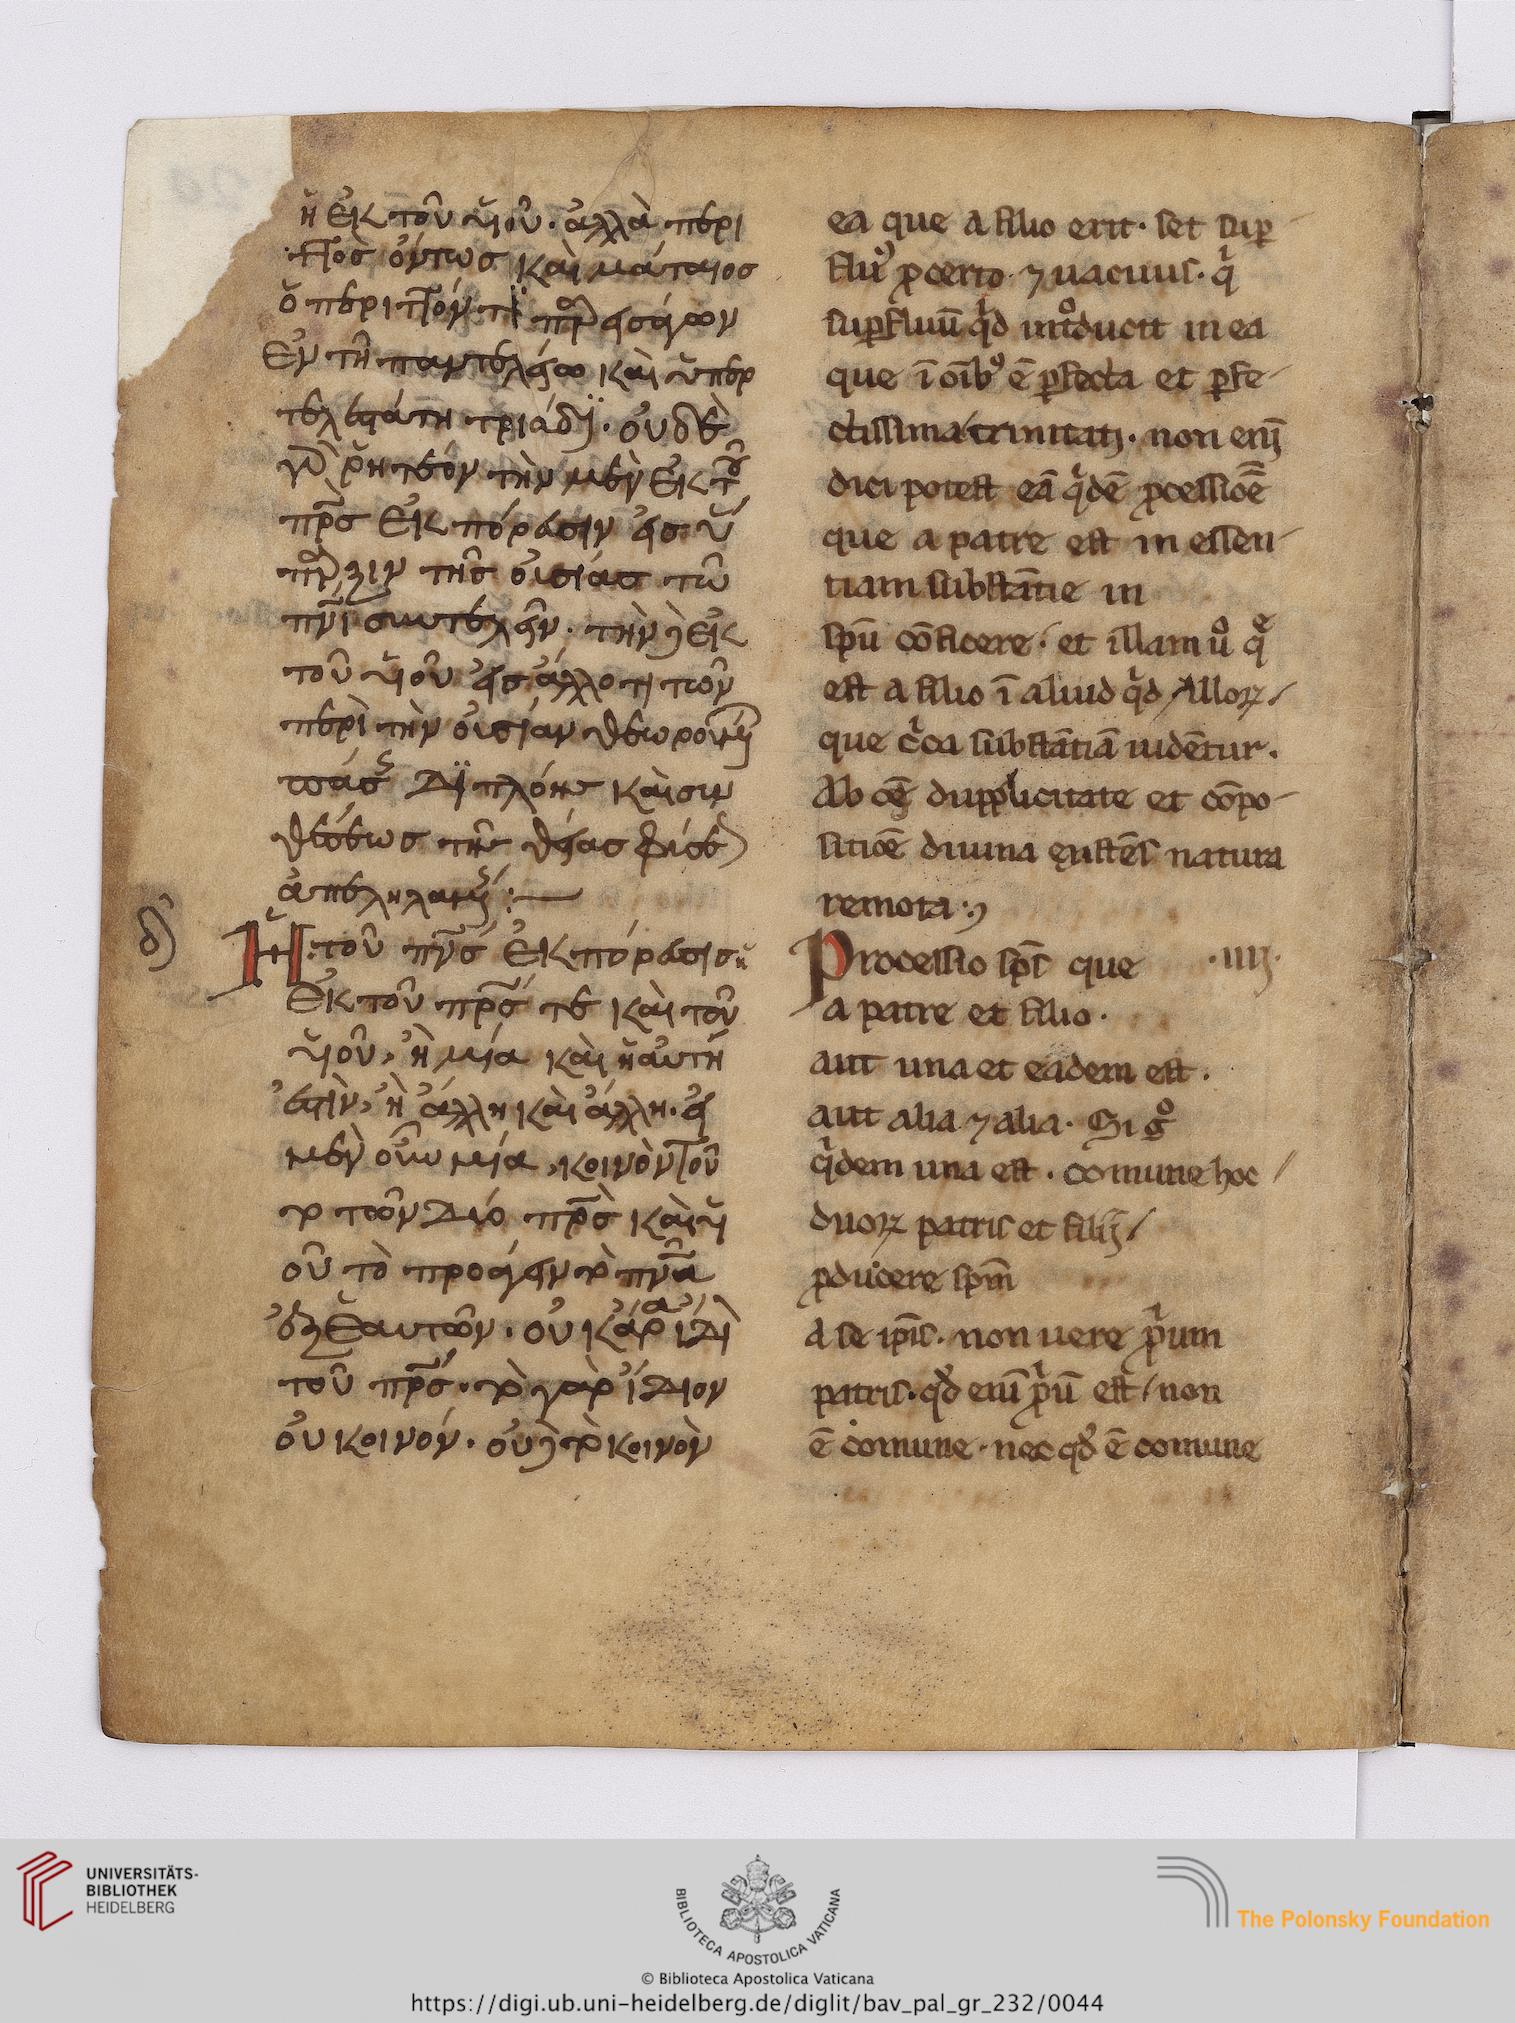 ἢ ἐκ τοῦ υἱοῦ· ἀλλὰ περι
τὸς ὄντως καὶ μάταιος
ἐν τῇ παντελείω καὶ ὑπερ
τελεστάτη τριάδϊ· οὐδὲ
γὰρ ῥητέον τὴν μὲν ἐκ τοῦ
πρ̅ς ἐκπόρευσιν εἰς ὕ
παρξιν τῆς οὐσίας τῶ
πν̅ι συντελεῖν· τὴν δὲ ἐκ
τοῦ υἱοῦ εἰς ἄλλο τι τῶν
περὶ τὴν οὐσίαν θεωρουμένων
πάσης διπλόης καὶ συν
θέσεως τῆς θείας φύσεως
ἀπεληλαμένης :—
δ´
Ἡ τοῦ πν̅ς ἐκπόρευσις ἡ
ἐκ τοῦ πρ̅ς τε καὶ τοῦ
υἱοῦ, ἢ μία καὶ ἡ αὐτή
ἐστιν, ἢ ἄλλη καὶ ἄλλη· εἰ
μὲν οὖν μία, κοινὸν τοῦ
το τῶν δύο πρ̅ς καὶ υἱ
οῦ τὸ προάγειν τὸ πν̅α
ἐξ ἑαυτῶν· οὐκ ἄρα ἴδι
τοῦ πρ̅ς· τὸ γὰρ ἴδιον
οὐ κοινόν· οὐδὲ τὸ κοινὸν
ea que a filio erit· set sup̲
fluꝰ ꝓcerto ⁊ uacuus· q̍
sup̲fluū q̍d int°ducit in ea
que ī oībꝰ ē p̲fecta et p̲fe-
ctissima trinitatꝫ· non enī
dici potest eā q̍dē ꝓcessiōē
que a patre est in essen-
tiam substātie in
sp̅u cōficere· et illam u° q̄
est a filio ī aliud q̍d alloꝝ
que c̍ca substātiā uidētur·
Ab oē dupplicitate et cōpo-
sitiōē diuina existēs natura
remota·
Processio sp̅s que ·iiij·
a patre et filio·
aut una et eadem est·
aut alia ⁊ alia· Si g°
q̍dem una est· comune hoc
duoꝝ patris et filij
ꝓducere sp̅m
a se ip̅is· non uere p̍pium
patris· qd̓ enī p̍piū est non
ē comune· nec qd̓ ē comune
UNIVERSITÄTS-
BIBLIOTHEK
HEIDELBERG
BIBLIOTECA APOSTOLICA VATICANA
The Polonsky Foundation
© Biblioteca Apostolica Vaticana
https://digi.ub.uni-heidelberg.de/diglit/bav_pal_gr_232/0044